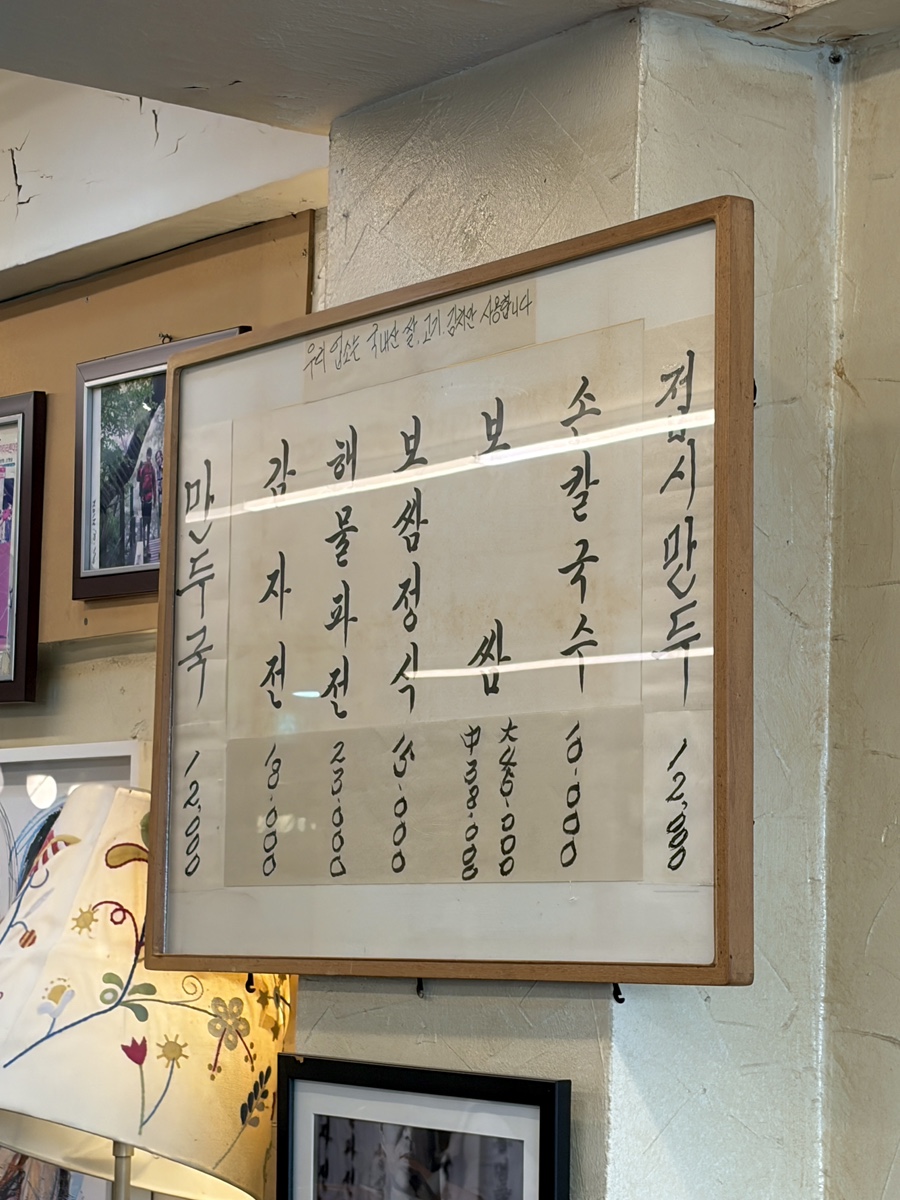 우리 업소는 국내산 쌀, 고기, 김치만 사용합니다
접시만두 12,000
손칼국수 10.000
보쌈 大 45.000
中 38.000
보쌈정식 15.000
해물파전 23.000
감자전 18.000
만두국 12,000